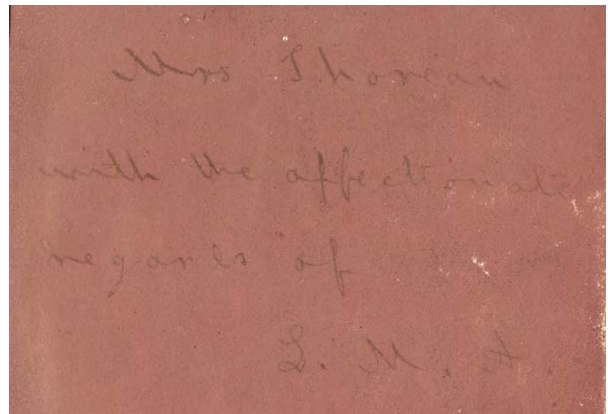 Mrs Thoreau
with the affectionate
regards of
L. M. A.